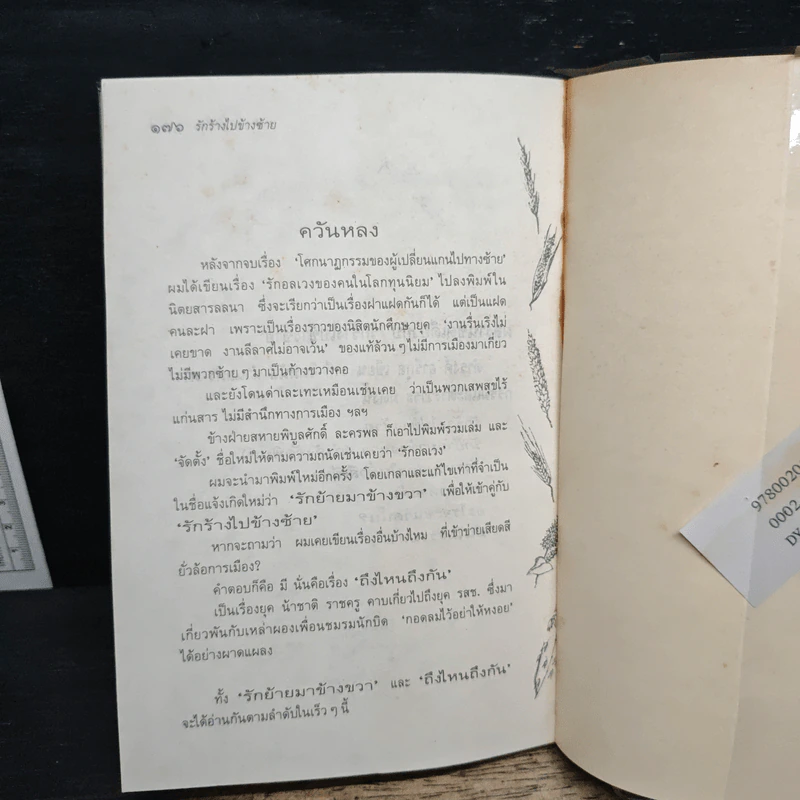 ๑๗๖ รักร้างไปข้างซ้าย
ควันหลง
หลังจากจบเรื่อง ‘โศกนาฏกรรมของผู้เปลี่ยนแกนไปทางซ้าย’
ผมได้เขียนเรื่อง ‘รักอลเวงของคนในโลกทุนนิยม’ ไปลงพิมพ์ใน
นิตยสารลลนา ซึ่งจะเรียกว่าเป็นเรื่องฝาแฝดกันก็ได้ แต่เป็นแฝด
คนละฝา เพราะเป็นเรื่องราวของนิสิตนักศึกษายุค ‘งานรื่นเริงไม่
เคยขาด งานลีลาศไม่อาจเว้น’ ของแท้ล้วน ๆ ไม่มีการเมืองมาเกี่ยว
ไม่มีพวกซ้าย ๆ มาเป็นก้างขวางคอ
และยังโดนด่าเละเทะเหมือนเช่นเคย ว่าเป็นพวกเสพสุขไร้
แก่นสาร ไม่มีสำนึกทางการเมือง ฯลฯ
ข้างฝ่ายสหายพิบูลศักดิ์ ละครพล ก็เอาไปพิมพ์รวมเล่ม และ
‘จัดตั้ง’ ชื่อใหม่ให้ตามความถนัดเช่นเคยว่า ‘รักอลเวง’
ผมจะนำมาพิมพ์ใหม่อีกครั้ง โดยเกลาและแก้ไขเท่าที่จำเป็น
ในชื่อแจ้งเกิดใหม่ว่า ‘รักย้ายมาข้างขวา’ เพื่อให้เข้าคู่กับ
‘รักร้างไปข้างซ้าย’
หากจะถามว่า ผมเคยเขียนเรื่องอื่นบ้างไหม ที่เข้าข่ายเสียดสี
ยั่วล้อการเมือง?
คำตอบก็คือ มี นั่นคือเรื่อง ‘ถึงไหนถึงกัน’
เป็นเรื่องยุค น้าชาติ ราชครู คาบเกี่ยวไปถึงยุค รสช. ซึ่งมา
เกี่ยวพันกับเหล่าผองเพื่อนชมรมนักบิด ‘กอดลมไว้อย่าให้หงอย’
ได้อย่างผาดแผลง
ทั้ง ‘รักย้ายมาข้างขวา’ และ ‘ถึงไหนถึงกัน’
จะได้อ่านกันตามลำดับในเร็ว ๆ นี้
9780020
0002